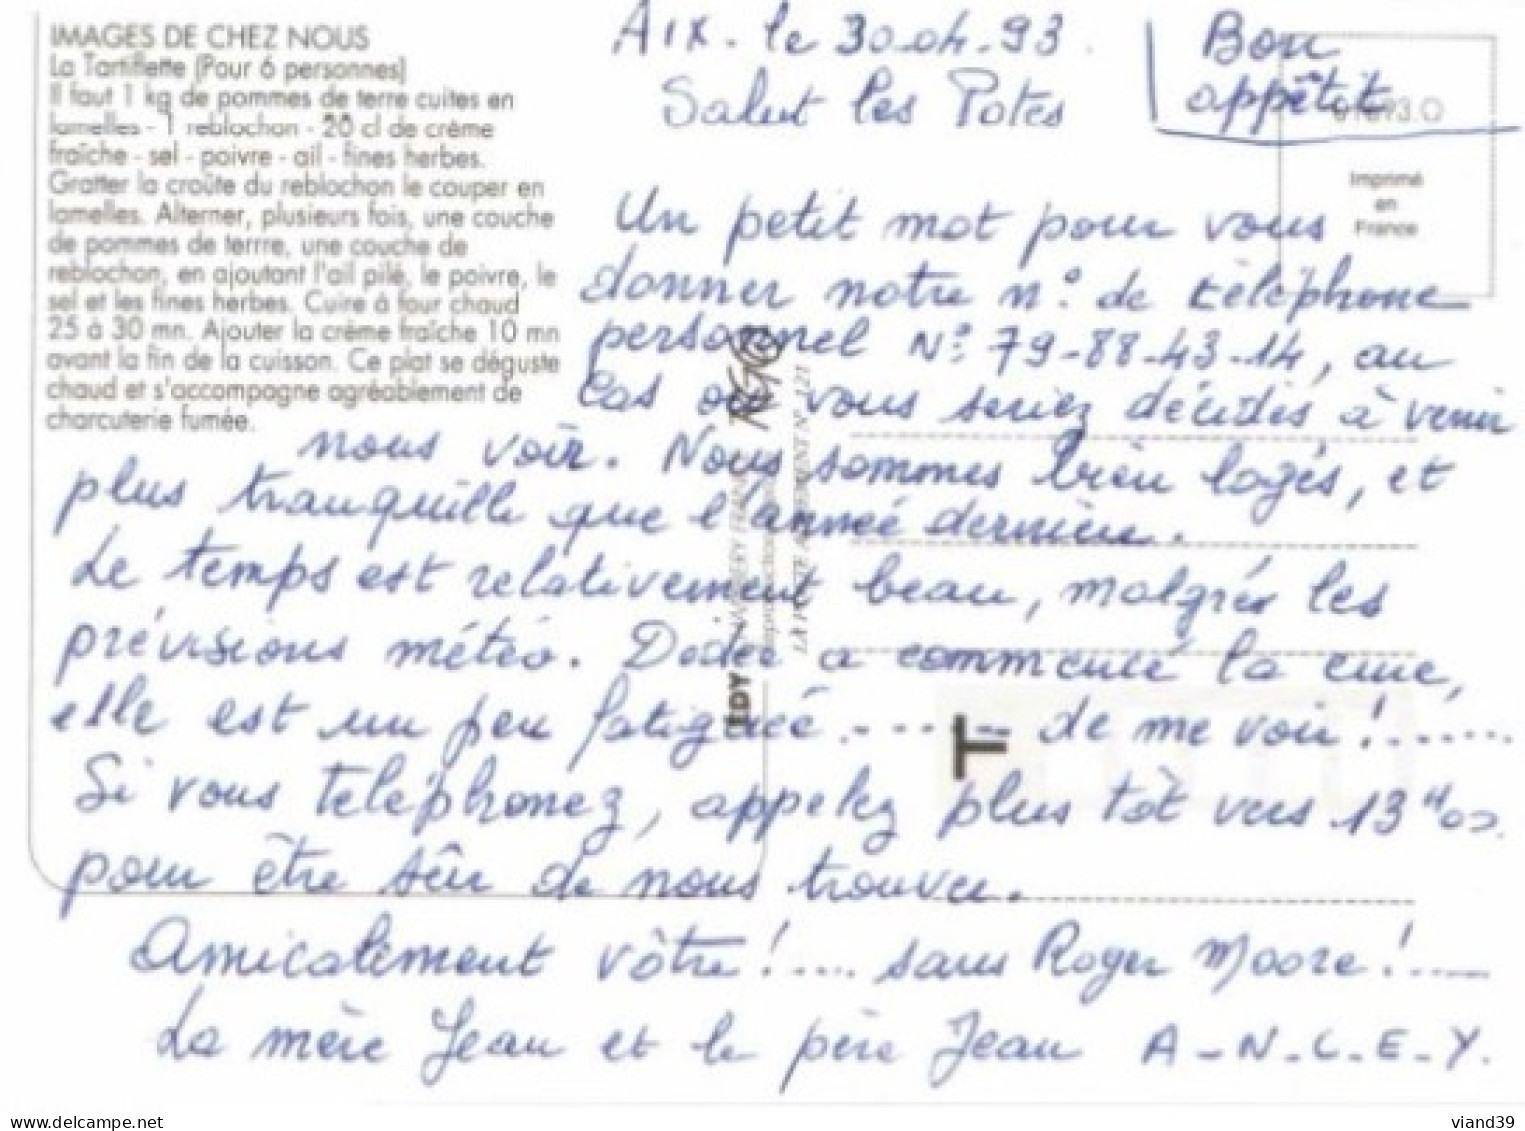 IMAGES DE CHEZ NOUS
La Tartiflette (Pour 6 personnes)
Il faut 1 kg de pommes de terre cuites en
lamelles - 1 reblochon - 20 cl de crème
fraîche - sel - poivre - ail - fines herbes.
Gratter la croûte du reblochon le couper en
lamelles. Alterner, plusieurs fois, une couche
de pommes de terrre, une couche de
reblochon, en ajoutant l'ail pilé, le poivre, le
sel et les fines herbes. Cuire à four chaud
25 à 30 mn. Ajouter la crème fraîche 10 mn
avant la fin de la cuisson. Ce plat se déguste
chaud et s'accompagne agréablement de
charcuterie fumée.
Aix. le 30.04.93.
Salut les Potes
Bon
appétit
Imprimé
en
France
Un petit mot pour vous
donner notre n° de téléphone
personnel N° 79-88-43-14, au
Cas où vous seriez décidés à venir
nous voir. Nous sommes bien logés, et
plus tranquille que l'année dernière.
Le temps est relativement beau, malgrés les
prévisions météo. Dédée a commencé la cure,
elle est un peu fatiguée ....... de me voir !.......
Si vous téléphonez, appelez plus tôt vers 13 H 00.
pour être sûr de nous trouver.
Amicalement vôtre !.... sans Roger Moore !....
La mère Jean et le père Jean A-N-C-E-Y.
EDY
T
viand39